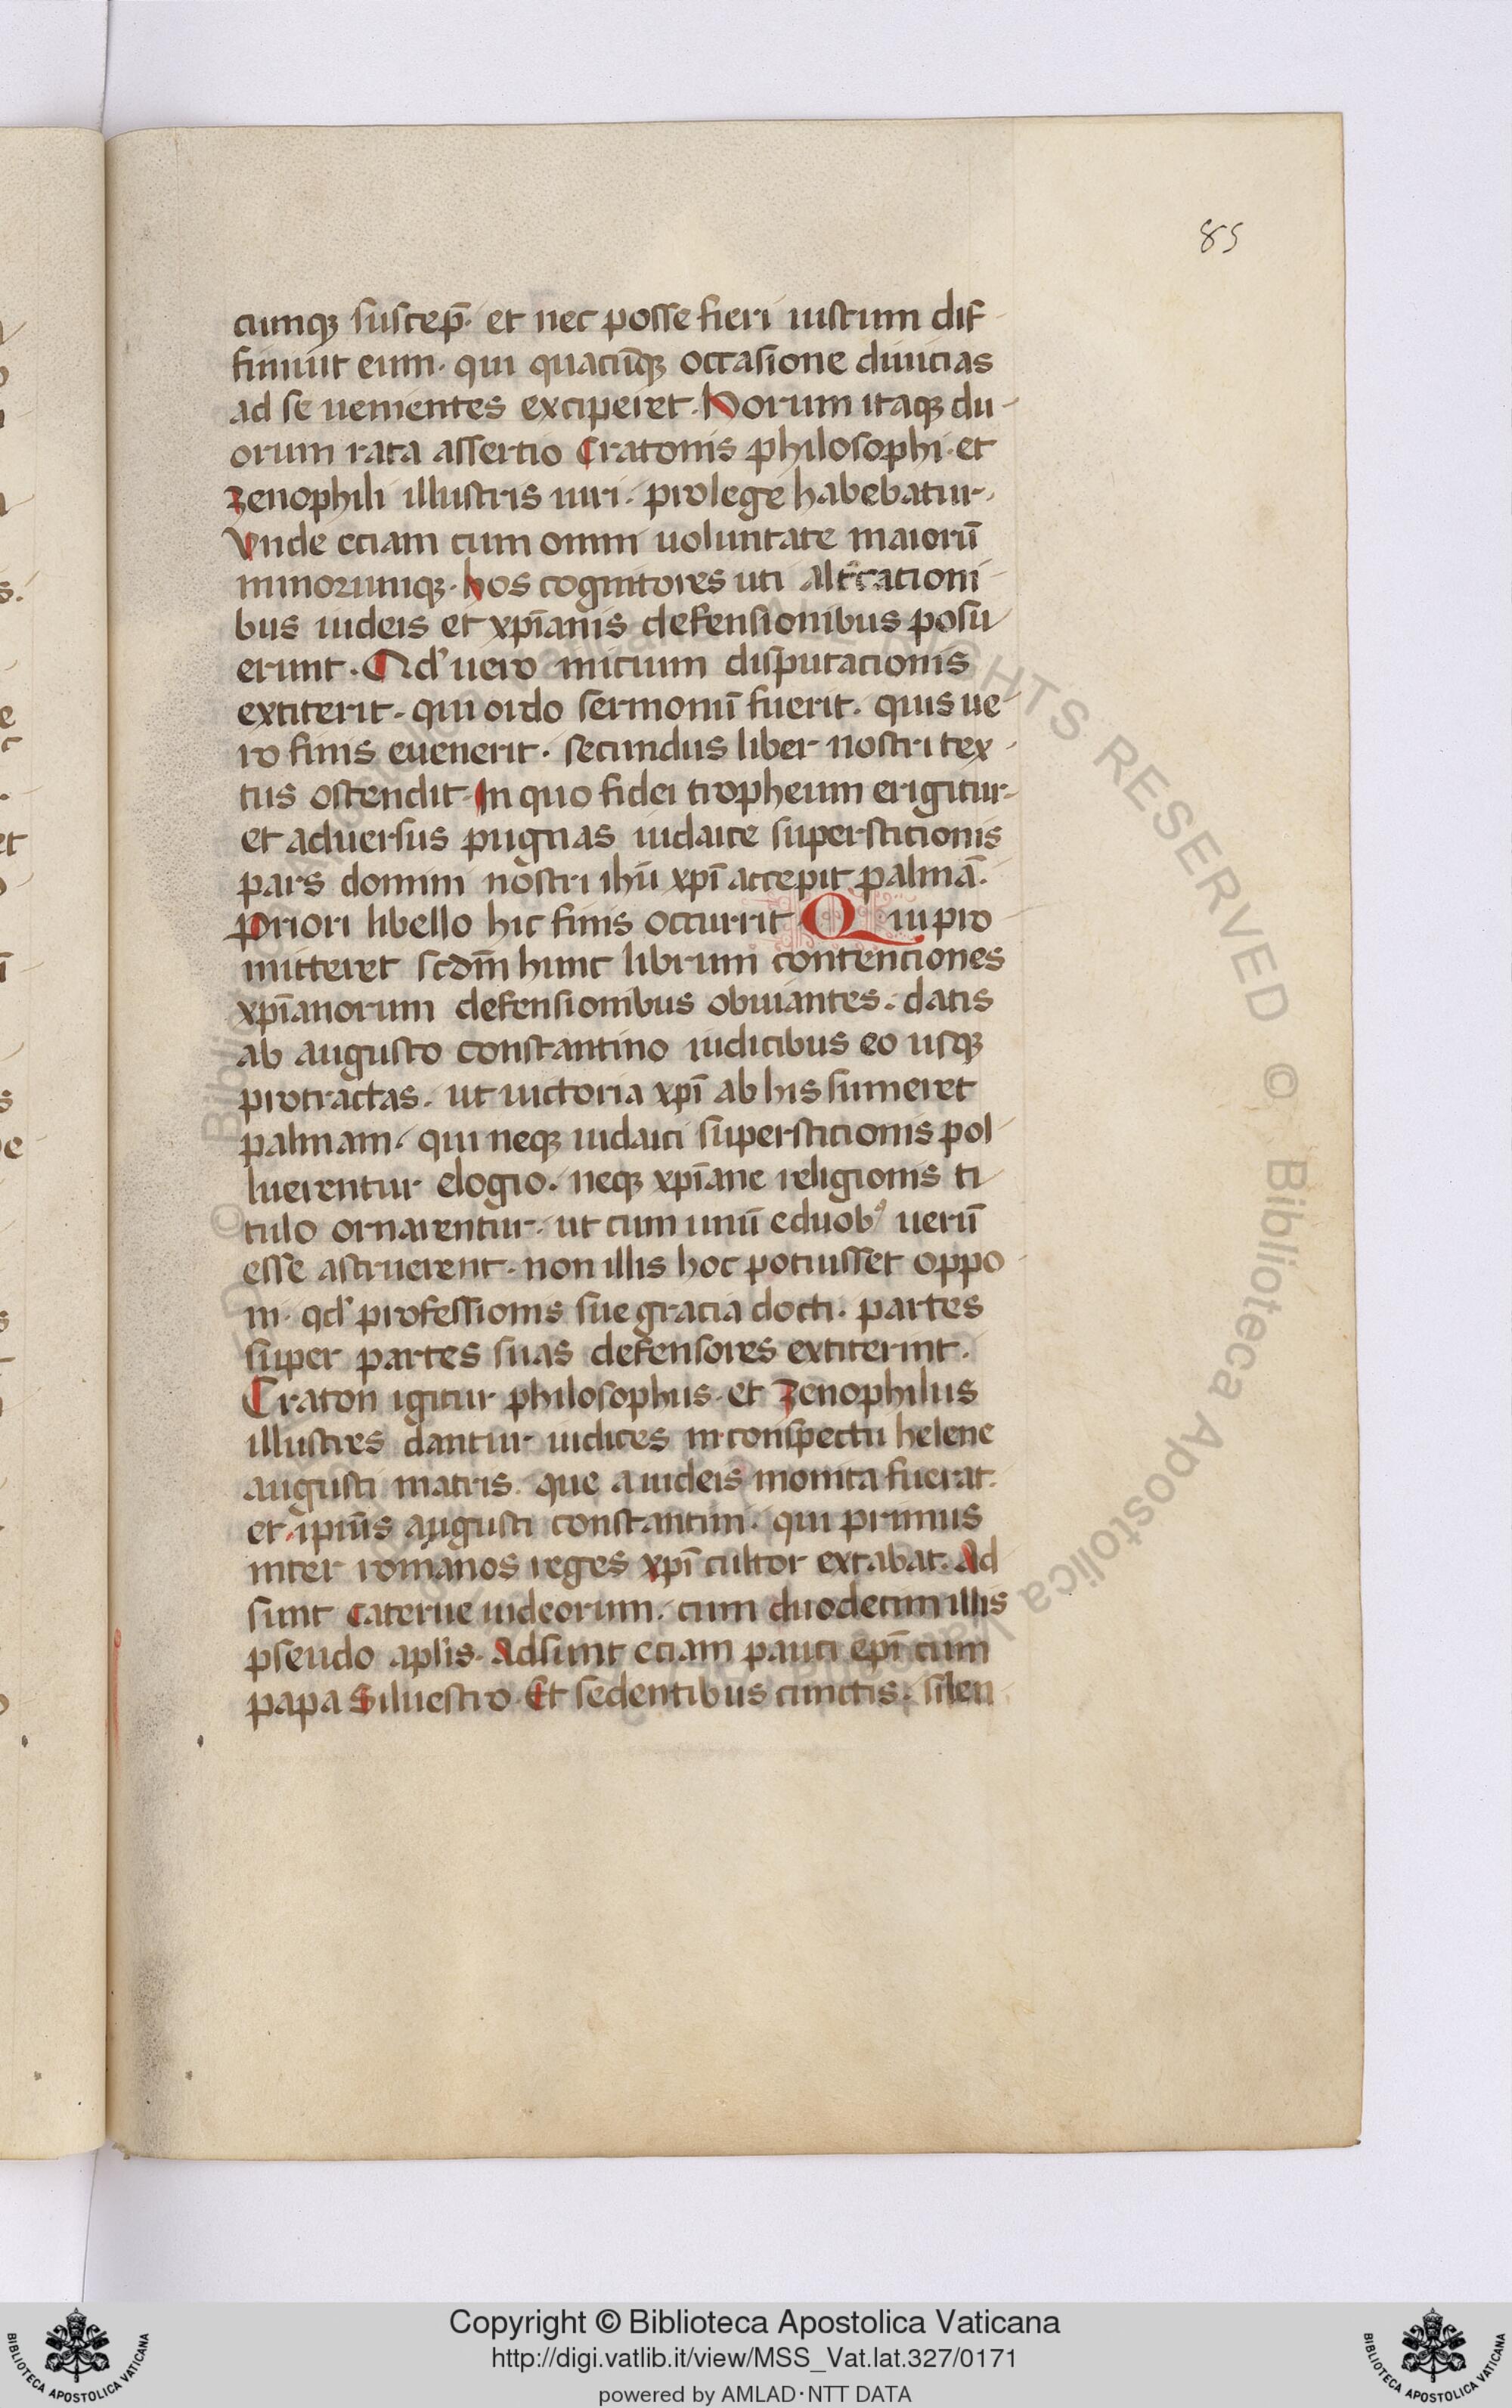 85
cumqꝫ suscep̄. et nec posse fieri iustum dif
finiuit eum. qui quacūqꝫ occasione diuicias
ad se uenientes exciperet. Horum itaqꝫ du-
orum rata assertio Cratonis philosophi. et
zenophili illustris uiri. prolege habebatur.
Vnde eciam cum omni uoluntate maiorū
minorumqꝫ. hos cognitores uti altercationi
bus iudeis et xp̄ianis defensionibus posu
erunt. Qd' uero inicium disputacionis
extiterit. qui ordo sermonū fuerit. quis ue-
ro finis euenerit. secundus liber nostri tex-
tus ostendit. In quo fidei tropheum erigitur.
et aduersus pugnas iudaice supersticionis
pars domini nostri ihū xp̄i accepit palmā.
Priori libello hic finis occurrit Qui pro
mitteret scdm̄ hunc librum contenciones
xp̄ianorum defensionibus obuiantes. datis
ab augusto constantino iudicibus eo usqꝫ
protractas. ut uictoria xp̄i ab his sumeret
palmam. qui neqꝫ iudaici supersticionis pol
luerentur elogio. neqꝫ xp̄iane religionis ti
tulo ornarentur. ut cum unū eduobꝰ uerū
esse astruerent. non illis hoc potuisset oppo
ni. qd' professionis sue gracia docti. partes
super partes suas defensores extiterint.
Craton igitur philosophus. et zenophilus
illustres dantur iudices in conspectu helene
augusti matris. que a iudeis monita fuerat.
et ipiūs augusti constantini. qui primus
inter romanos reges xp̄i cultor extabat. Ad
sunt caterue iudeorum. cum duodecim illis
pseudo aplīs. Adsunt eciam pauci ep̄i cum
papa Siluestro. Et sedentibus cunctis. silen
Copyright © Biblioteca Apostolica Vaticana
http://digi.vatlib.it/view/MSS_Vat.lat.327/0171
powered by AMLAD·NTT DATA